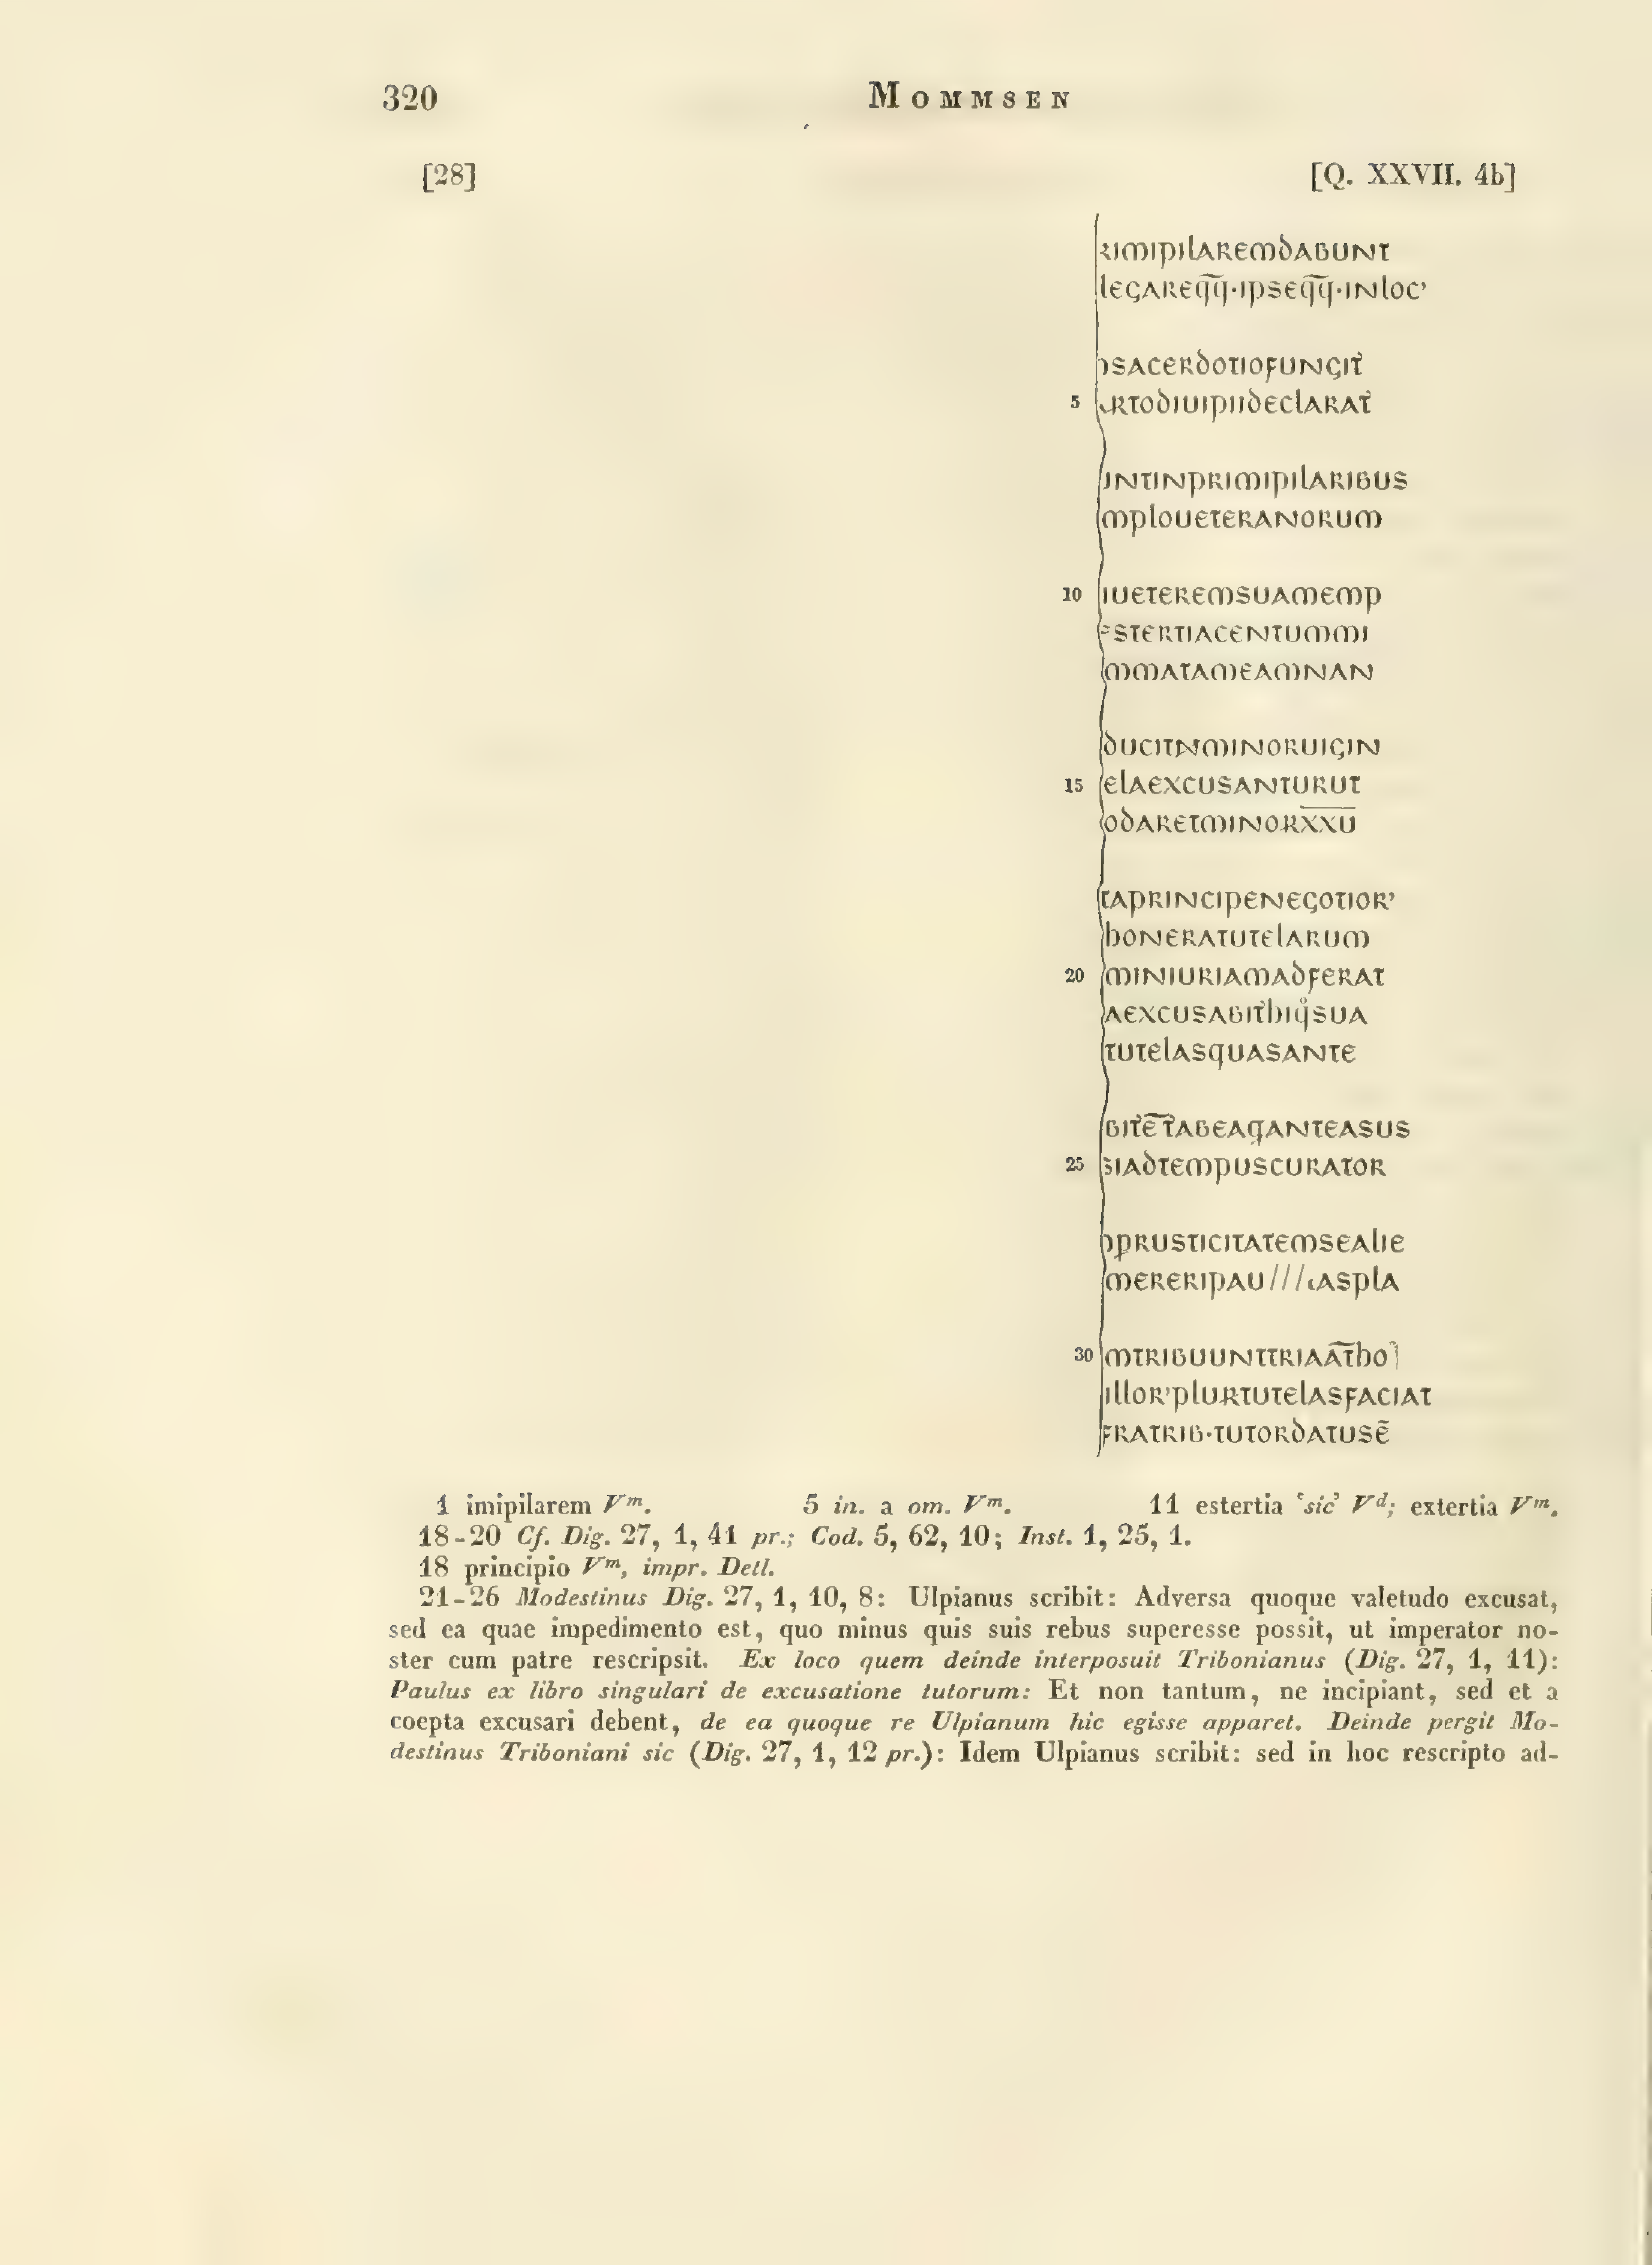 320 MOMMSEN
[28] [Q. XXVII. 4b]
rimipilaremdabunt
legareq̅q̅·ipseq̅q̅·inloc’
osacerdotiofungit̓
5 artodiuipiideclarat̓
untinprimipilaribus
mploueteranorum
10 iueteremsuamemp
estertiacentummi
mmatameamnan
ducitnminoruigin
15 elaexcusanturut
odaretminorx̅x̅u̅
taprincipenegotior’
honeratutelarum
20 miniuriamadferat
aexcusabit̓hiq̊sua
tutelasquasante
bit̓e̅t̅abeaqanteasus
25 siadtempuscurator
oprusticitatemsealie
mereripau///caspla
30 mtribuunttriaa̅t̅ho
illor’plurtutelasfaciat
fratrib·tutordatusē
1 imipilarem Vᵐ. 5 in. a om. Vᵐ. 11 estertia ‘sic’ Vᵈ; extertia Vᵐ.
18-20 Cf. Dig. 27, 1, 41 pr.; Cod. 5, 62, 10; Inst. 1, 25, 1.
18 principio Vᵐ, impr. Detl.
21-26 Modestinus Dig. 27, 1, 10, 8: Ulpianus scribit: Adversa quoque valetudo excusat,
sed ea quae impedimento est, quo minus quis suis rebus superesse possit, ut imperator no-
ster cum patre rescripsit. Ex loco quem deinde interposuit Tribonianus (Dig. 27, 1, 11):
Paulus ex libro singulari de excusatione tutorum: Et non tantum, ne incipiant, sed et a
coepta excusari debent, de ea quoque re Ulpianum hic egisse apparet. Deinde pergit Mo-
destinus Triboniani sic (Dig. 27, 1, 12 pr.): Idem Ulpianus scribit: sed in hoc rescripto ad-